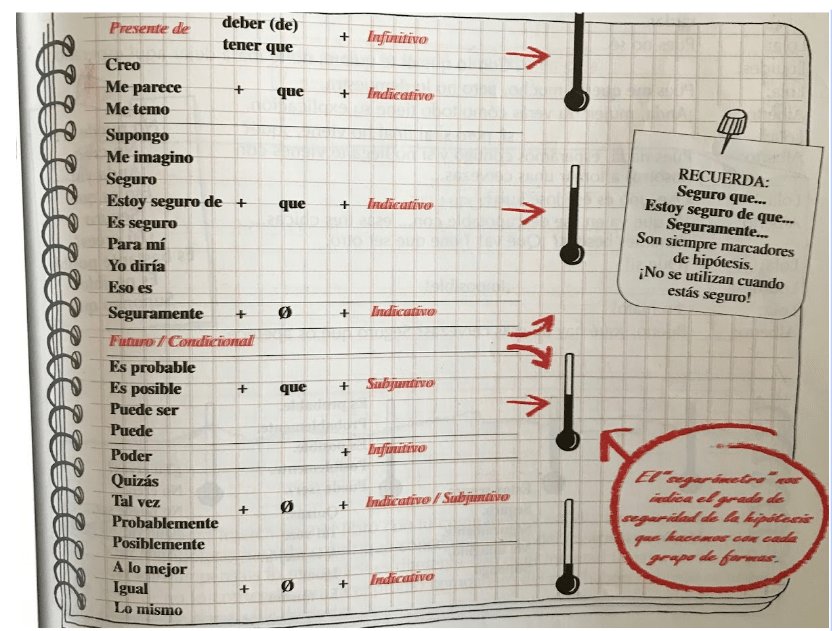 Presente de deber (de) + Infinitivo
tener que
Creo
Me parece + que + Indicativo
Me temo
Supongo
Me imagino
Seguro
Estoy seguro de + que + Indicativo
Es seguro
Para mí
Yo diría
Eso es
Seguramente + Ø + Indicativo
Futuro / Condicional
Es probable
Es posible + que + Subjuntivo
Puede ser
Puede
Poder + Infinitivo
Quizás
Tal vez + Ø + Indicativo / Subjuntivo
Probablemente
Posiblemente
A lo mejor
Igual + Ø + Indicativo
Lo mismo
RECUERDA:
Seguro que...
Estoy seguro de que...
Seguramente...
Son siempre marcadores
de hipótesis.
¡No se utilizan cuando
estás seguro!
El "segurómetro" nos
indica el grado de
seguridad de la hipótesis
que hacemos con cada
grupo de formas.